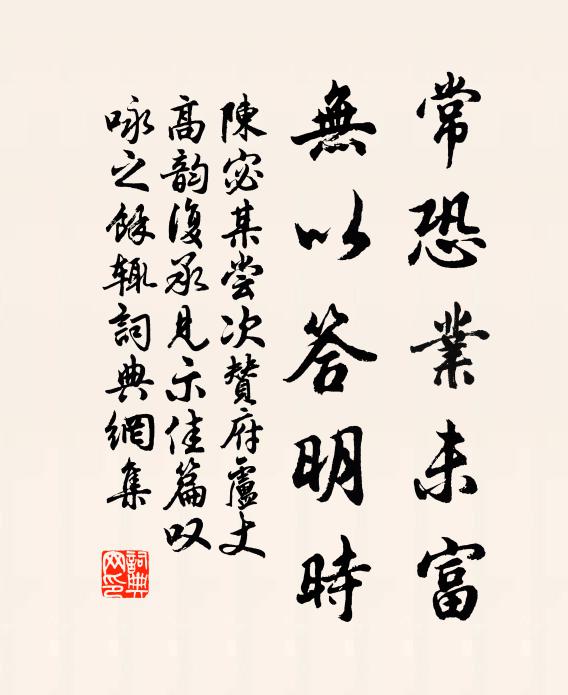 常恐業未富
無以答明時
陳宓某嘗次贊府盧丈
高韵復承見示佳篇叹
咏之餘輒詞典網集
詞典
网印